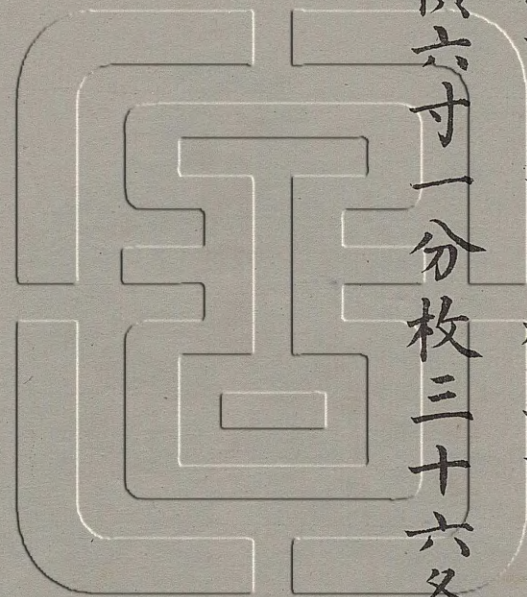 六寸一分枚三十六各